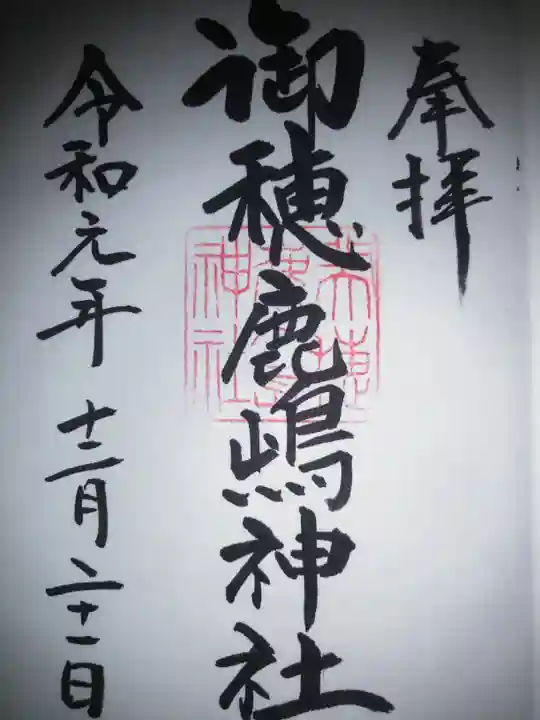 奉拝
御穂鹿嶋神社
令和元年 十二月二十一日